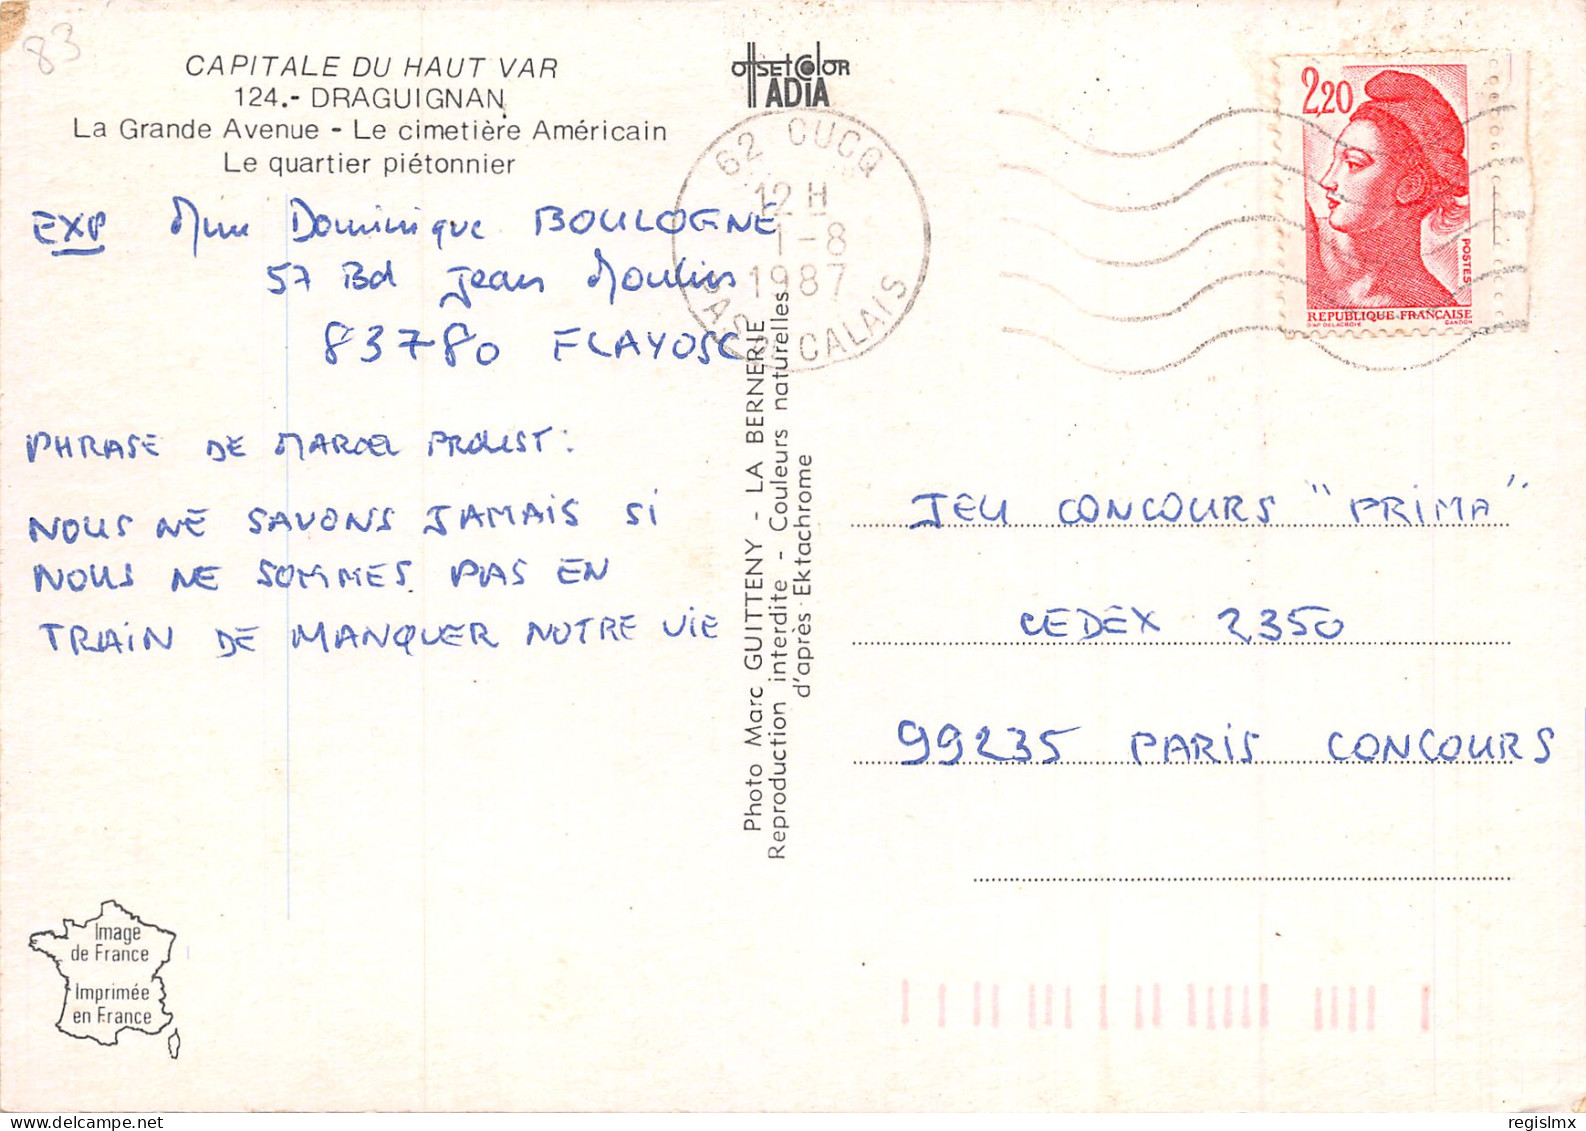 83
CAPITALE DU HAUT VAR
124.- DRAGUIGNAN
La Grande Avenue - Le cimetière Américain
Le quartier piétonnier
OffSEt COlOR
ADIA
62 CUCQ
12 H
1-8
1987
PAS DE CALAIS
2,20
POSTES
REPUBLIQUE FRANÇAISE
D'AP DELACROIX GANDON
EXP Mme Dominique BOULOGNE
57 Bd Jean Moulin
83780 FLAYOSC
PHRASE DE MARCEL PROUST:
NOUS NE SAVONS JAMAIS SI
NOUS NE SOMMES PAS EN
TRAIN DE MANQUER NOTRE VIE
Photo Marc GUITTENY - LA BERNERIE
Reproduction interdite - Couleurs naturelles
d'après Ektachrome
JEU CONCOURS "PRIMA"
CEDEX 2350
99235 PARIS CONCOURS
Image
de France
Imprimée
en France
regislmx